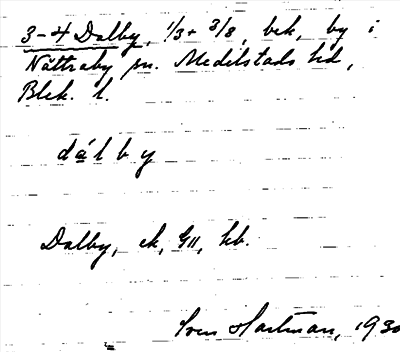 3-4 Dalby, 1/3 + 3/8, bek, by i
Nättraby sn. Medelstads hd,
Blek. l.
dálby
Dalby, ek, GII, hb.
Sven Hartman, 1930